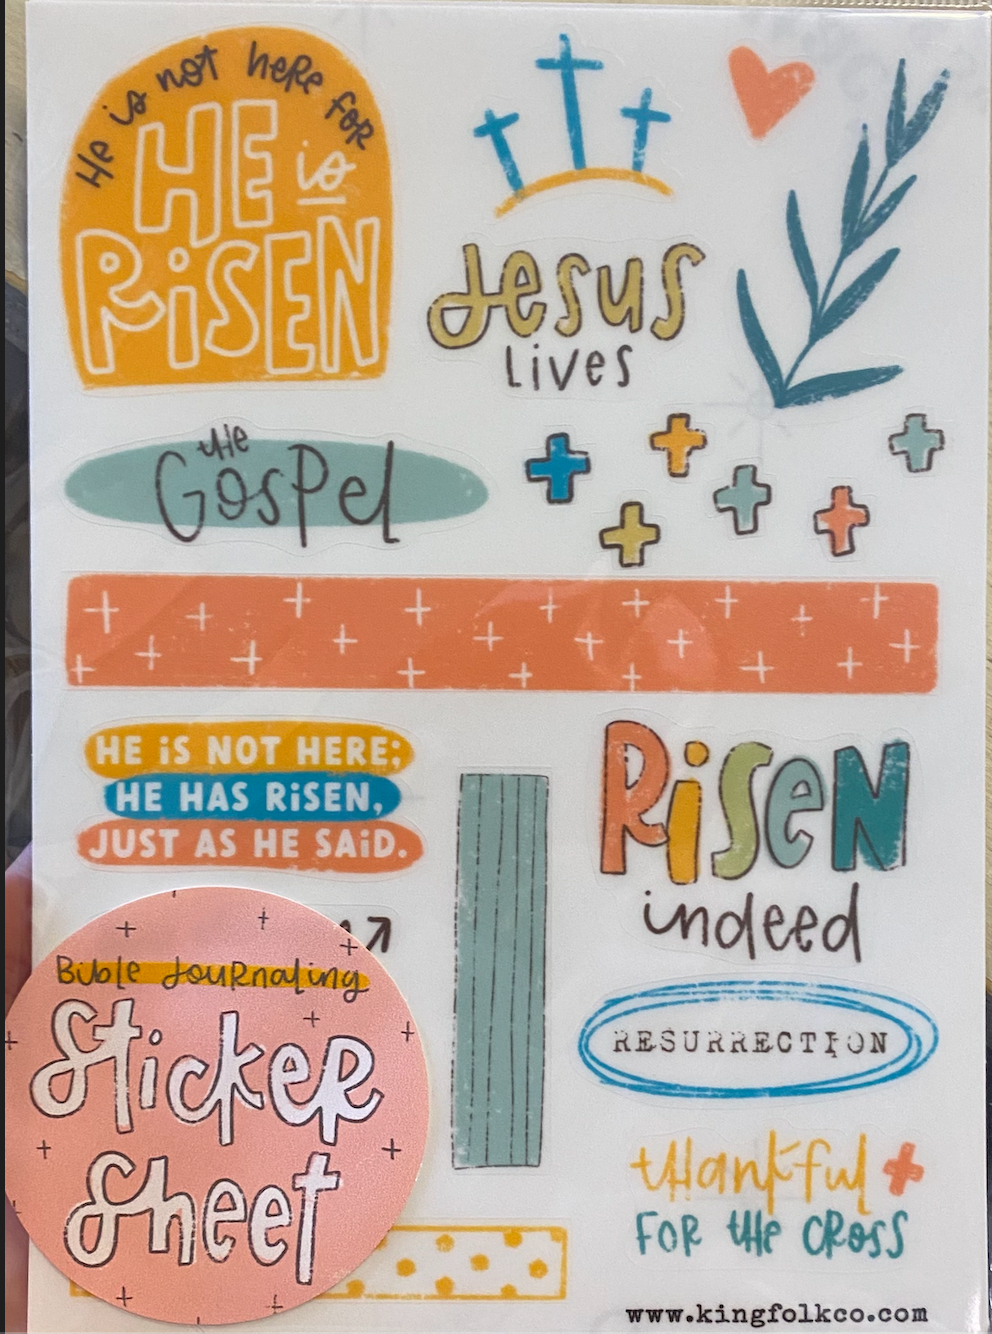 He is not here for
HE is
RiSEN
Jesus
Lives
the
Gospel
HE iS NOT HERE;
HE HAS RiSEN,
JUST AS HE SAiD.
Risen
indeed
RESURRECTION
thankful
FOR tHe CROSS
Bible Journaling
Sticker
Sheet
www.kingfolkco.com